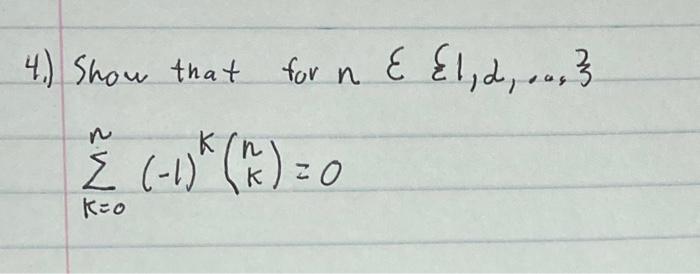 4.) Show that for n ∈ {1,2,...,}
n
∑ (-1)^K (n K) = 0
K=0